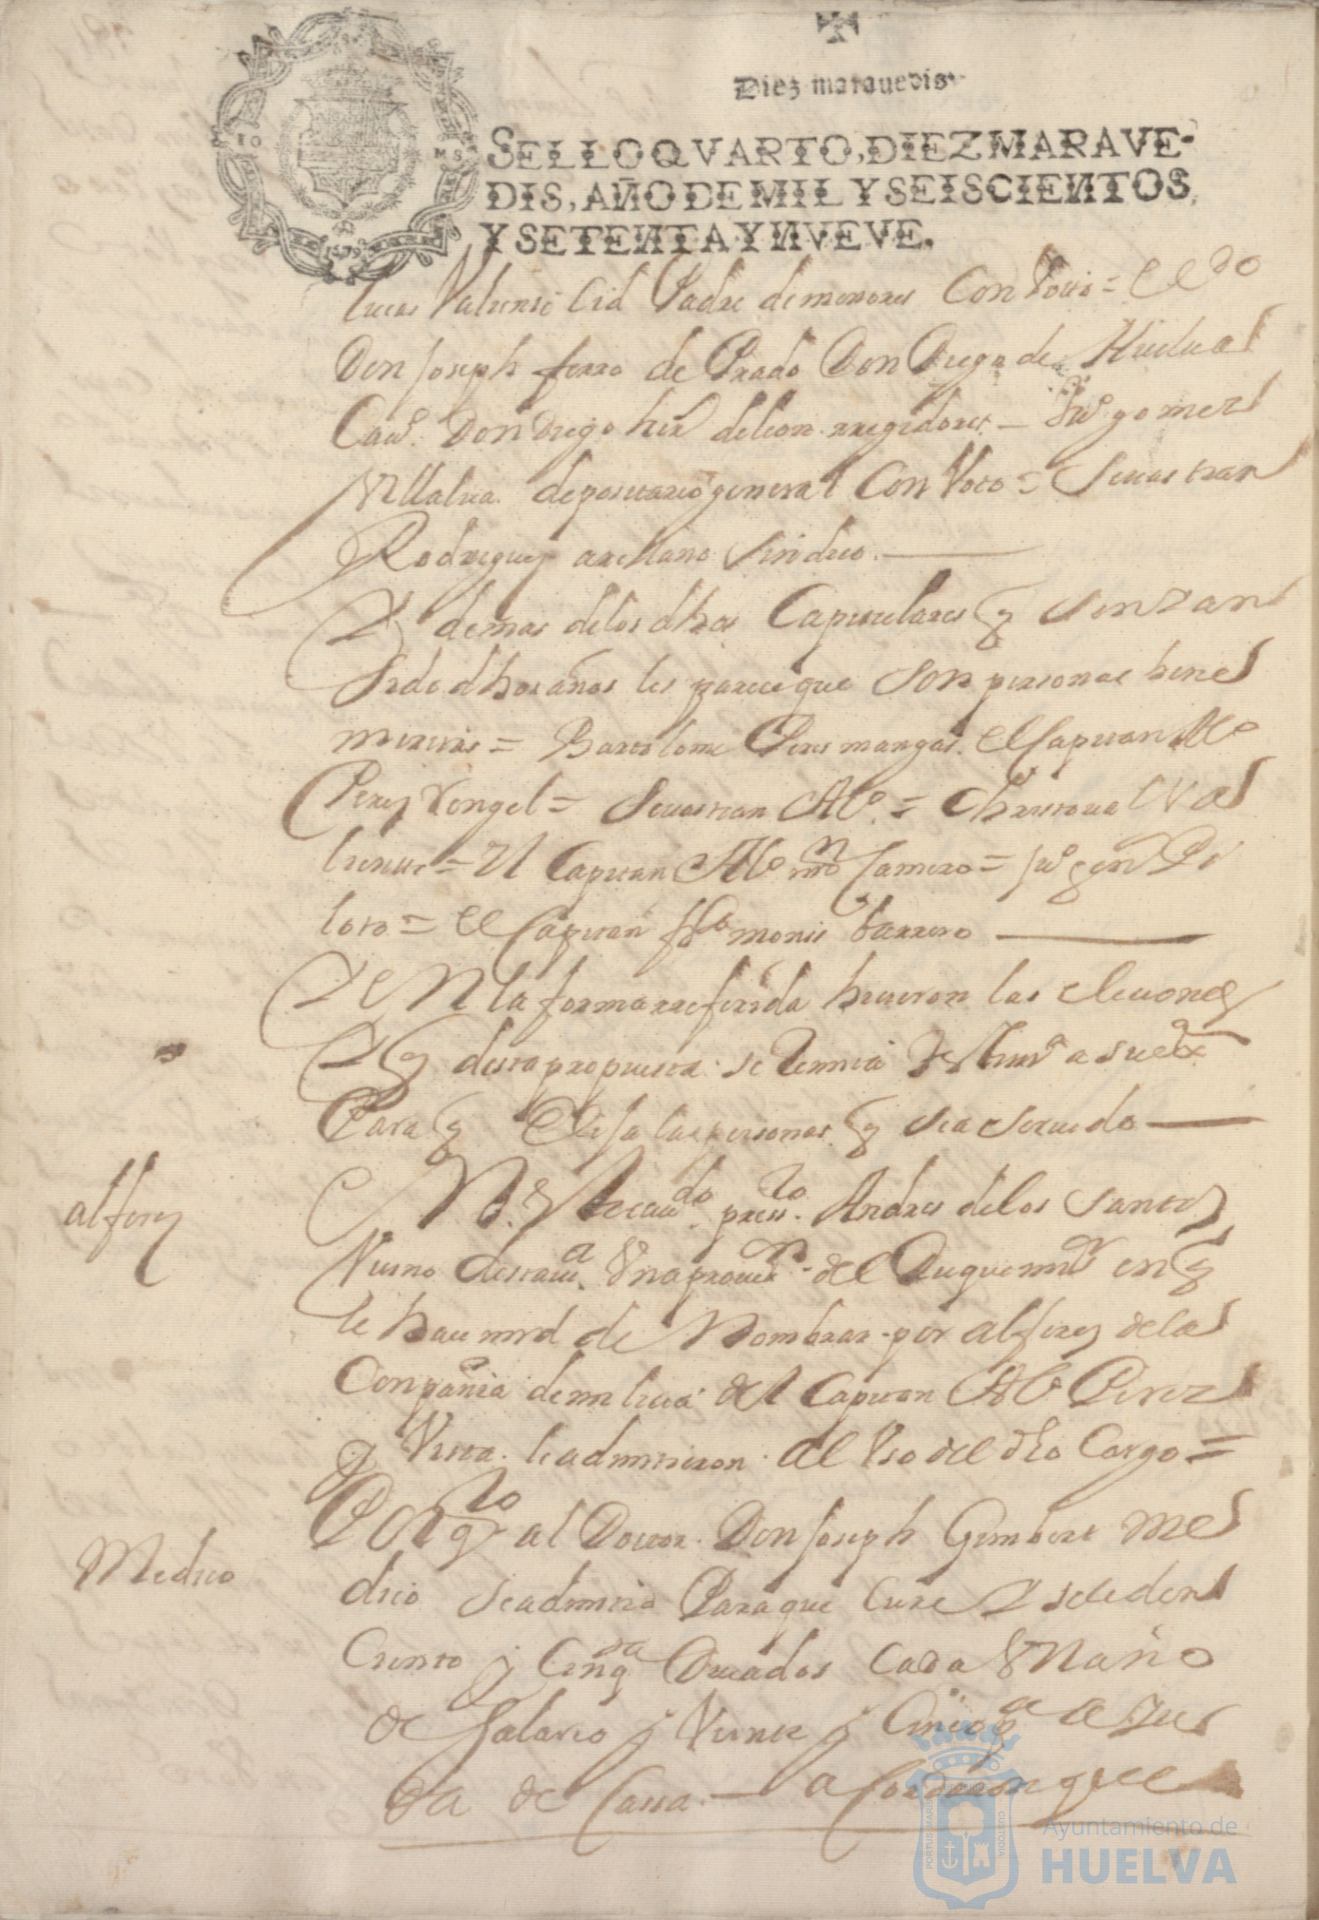 Diez marauedis
SELLO QVARTO, DIEZ MARAVE-
DIS, AÑO DE MIL Y SEISCIENTOS,
Y SETENTA Y NVEVE.
lucas Valiente Cid Padre demenores Con Voto = El Ldo
Don Joseph ferro de Prado Don Diego de Huelua
Cauo. Don Diego hēr deleon rregidores – Juo gomez
Villalua. depositario general Con Voto = Seuastian
Rodriguez arellano Sindico.
Y demas delos dhos Capitulares q
Sido dhos años les pareze que Son personas bene
meritas = Bartolome Peres mangas. El Capitan Alo
Perez Rengel = Seuastian Alo. = Christoual Va
liente = El Capitan Alo mño Camero = Juo
loro = El Capitan fco monis barrero
Y EN la forma rreferida hicieron las eleciones
Y q desta propuesta se Remita a su exa
Para q Elija las personas q sea seruido
alferez
presto. Andres delos Santos
Vecino destaua. Vna prouon. del Duque mi sr en q
le hace mrd de Nombrar por alferez dela
Conpañia de milicia del Capitan Alo Perez
y Vista le admitieron al Vso del dho Cargo =
Medico
Por qto al Doctor Don Joseph Gimbert me
dico se admitio Para que Cure Y se le den
Ciento y Cinqta Ducados Cada Vn año
de Salario y Veinte y Cinco de ayu
da de Cassa. – acordaron que se
Ayuntamiento de
HUELVA